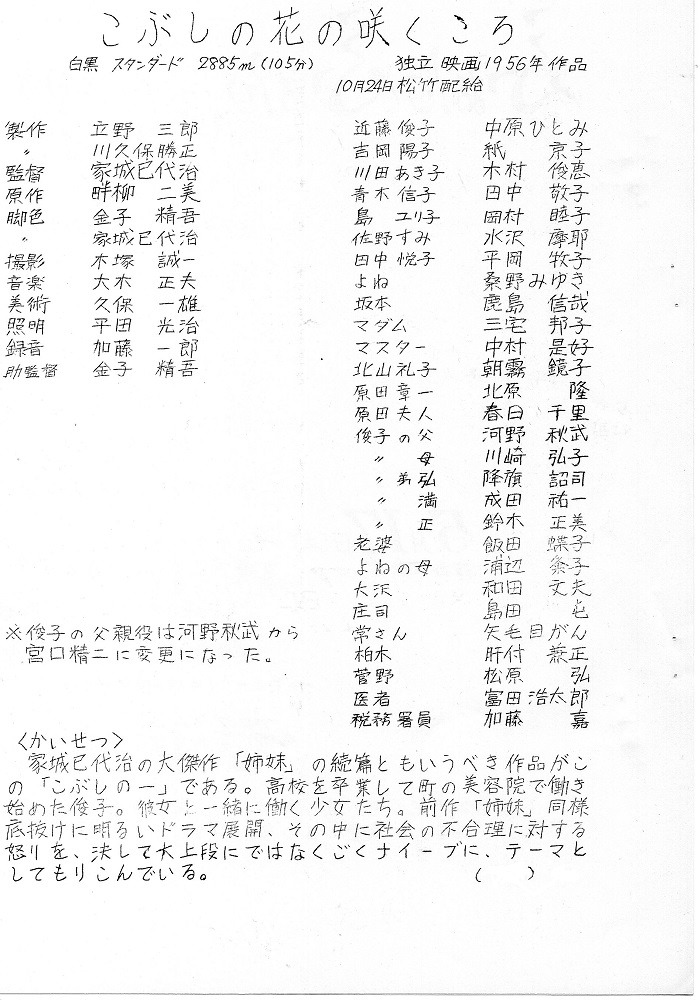 こぶしの花の咲くころ
白黒 スタンダード 2885m(105分) 独立映画1956年作品
10月24日松竹配給
製作 立野 三郎
〃 川久保勝正
監督 家城巳代治
原作 畔柳 二美
脚色 金子 精吾
〃 家城巳代治
撮影 木塚 誠一
音楽 大木 正夫
美術 久保 一雄
照明 平田 光治
録音 加藤 一郎
助監督 金子 精吾
近藤俊子 中原ひとみ
吉岡陽子 紙 京子
川田あき子 木村 俊恵
青木信子 田中 敬子
島 ユリ子 岡村 睦子
佐野すみ 水沢 摩耶
田中悦子 平岡 牧子
よね 桑野みゆき
坂本 鹿島 信哉
マダム 三宅 邦子
マスター 中村 是好
北山礼子 朝霧 鏡子
原田章一 北原 隆
原田夫人 春日 千里
俊子の父 河野 秋武
〃 母 川崎 弘子
〃 弟弘 降旗 詔司
〃 満 成田 祐一
〃 正 鈴木 正美
老婆 飯田 蝶子
よねの母 浦辺 粂子
大沢 和田 文夫
庄司 島田 屯
常さん 矢毛目がん
柏木 肝付 兼正
菅野 松原 弘
医者 富田治太郎
税務署員 加藤 嘉
※俊子の父親役は河野秋武から
宮口精二に変更になった。
〈かいせつ〉
家城巳代治の大傑作「姉妹」の続篇ともいうべき作品がこ
の「こぶしの一」である。高校を卒業して町の美容院で働き
始めた俊子。彼女と一緒に働く少女たち。前作「姉妹」同様
底抜けに明るいドラマ展開、その中に社会の不合理に対する
怒りを、決して大上段にではなくごくナイーブに、テーマと
してもりこんでいる。 ( )